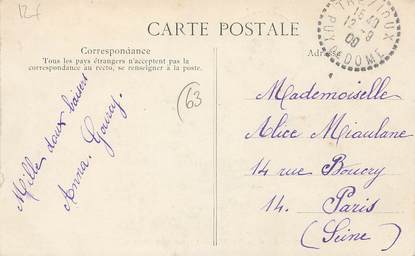 12f
CARTE POSTALE
Correspondance
Tous les pays étrangers n'acceptent pas la
correspondance au recto, se renseigner à la poste.
Adresse
PUY DE DOME
63
Mille doux baisers
Anna.
Mademoiselle
Alice Miaulane
14 rue Boucry
14. Paris
(Seine)